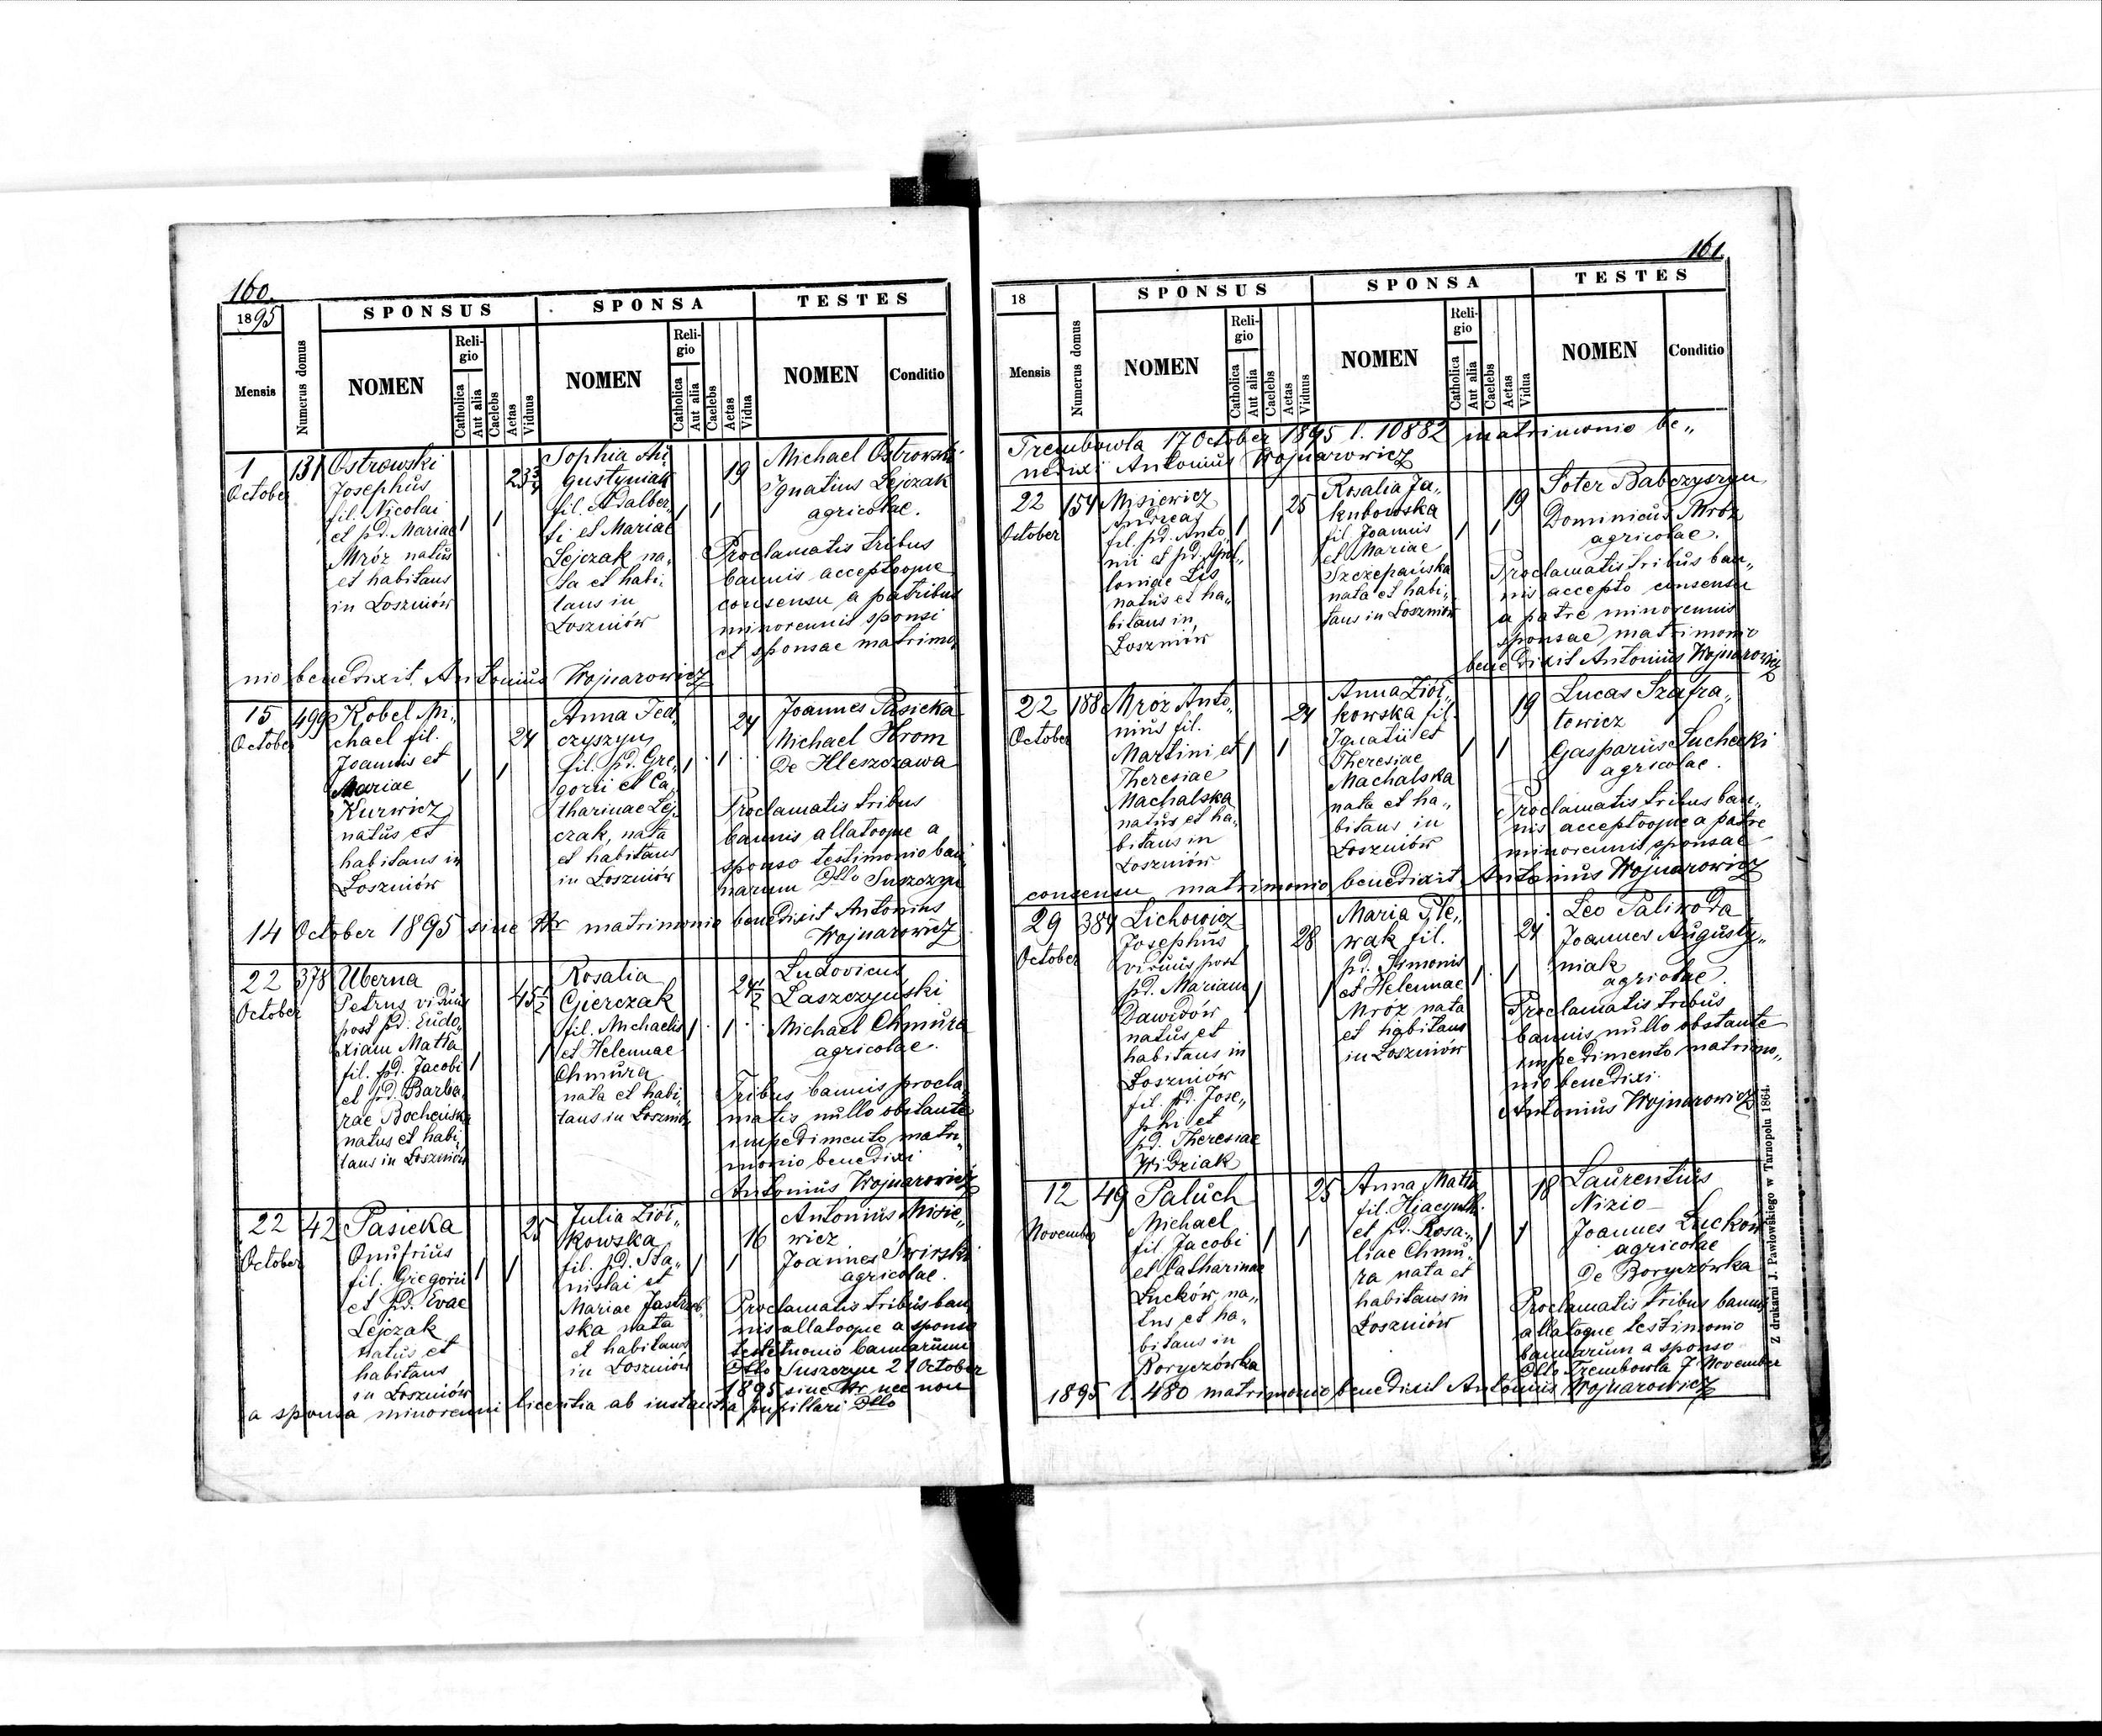 160.
1895
SPONSUS
SPONSA
TESTES
Mensis
Numerus domus
NOMEN
Religio
Catholica
Aut alia
Caelebs
Aetas
Viduus
NOMEN
Religio
Catholica
Aut alia
Caelebs
Aetas
Vidua
NOMEN
Conditio
1
October
131
Ostrowski
Josephus
fil. Nicolai
et pd. Mariae
Mróz natus
et habitans
in Łoszniów
23 3/4
Sophia Au„
gustyniak
fil. Adalber„
ti et Mariae
Lejczak na„
ta et habi„
tans in
Łoszniów
19
Michael Ostrowski
Ignatius Lejczak
agricolae.
Proclamatis tribus
bannis acceptoque
consensu a patribus
minorennis sponsi
et sponsae matrimo„
nio benedixit Antonius Wojnarowicz
15
October
499
Kobel Mi„
chael fil.
Joannis et
Mariae
Kurwicz
natus et
habitans in
Łoszniów
24
Anna Fed„
czyszyn
fil. pd. Gre„
gorii et Ca„
tharinae Lej„
czak, nata
et habitans
in Łoszniów
24
Joannes Pasieka
Michael Hrom
De Hleszczawa
Proclamatis tribus
bannis allatoque a
sponso testimonio ban„
narum Dtto Suszczyn
14 October 1895 sine Nr matrimonio benedixit Antonius
Wojnarowicz
22
October
378
Uberna
Petrus viduus
post pd. Eudo„
xiam Matla
fil. pd. Jacobi
et pd. Barba„
rae Bocheńska
natus et habi„
tans in Łoszniów
45 1/2
Rosalia
Gierczak
fil. Michaelis
et Helennae
Chmura
nata et habi„
tans in Łoszniów
24 1/2
Ludovicus
Laszczyński
Michael Chmura
agricolae.
Tribus bannis procla„
matis nullo obstante
impedimento matri„
monio benedixi
Antonius Wojnarowicz
22
October
42
Pasieka
Onufrius
fil. Gregorii
et pd. Evae
Lejczak
natus et
habitans
in Łoszniów
25
Julia Ziół„
kowska
fil. pd. Sta„
nislai et
Mariae Jastrzęb„
ska nata
et habitans
in Łoszniów
16
Antonius Misie„
wicz
Joannes Świrski
agricolae.
Proclamatis tribus ban„
nis allatoque a sponso
testimonio bannarum
Dtto Suszczyn 21 October
1895 sine Nr nec non
a sponsa minorenni licentia ab instantia pupillari Dtto
161.
18
SPONSUS
SPONSA
TESTES
Mensis
Numerus domus
NOMEN
Religio
Catholica
Aut alia
Caelebs
Aetas
Viduus
NOMEN
Religio
Catholica
Aut alia
Caelebs
Aetas
Vidua
NOMEN
Conditio
Trembowla 17 October 1895 l. 10882 matrimonio be„
nedixi Antonius Wojnarowicz
22
October
154
Misiewicz
Andreas
fil. pd. Anto„
nii et pd. Apol„
loniae Lis
natus et ha„
bitans in
Łoszniów
25
Rosalia Ja„
kubowska
fil Joannis
et Mariae
Szczepańska
nata et habi„
tans in Łoszniów
19
Soter Babczyszyn
Dominicus Mróz
agricolae.
Proclamatis tribus ban„
nis accepto consensu
a patre minorennis
sponsae matrimonio
benedixit Antonius Wojnarowicz
22
October
188
Mróz Anto„
nius fil.
Martini et
Theresiae
Machalska
natus et ha„
bitans in
Łoszniów
24
Anna Ziół„
kowska fil.
Ignatii et
Theresiae
Machalska
nata et ha„
bitans in
Łoszniów
19
Lucas Szafra„
towicz
Gasparus Suchecki
agricolae.
Proclamatis tribus ban„
nis acceptoque a patre
minorennis sponsae
consensu matrimonio benedixit Antonius Wojnarowicz
29
October
384
Lichowicz
Josephus
viduus post
pd. Mariam
Dawidów
natus et
habitans in
Łoszniów
fil. pd. Jose„
phi et
pd. Theresiae
Widziak
28
Maria Ple„
wak fil.
pd. Simonis
et Helennae
Mróz nata
et habitans
in Łoszniów
24
Leo Paliwoda
Joannes Augusty„
niak
agricolae.
Proclamatis tribus
bannis nullo obstante
impedimento matrimo„
nio benedixi.
Antonius Wojnarowicz
12
November
49
Paluch
Michael
fil. Jacobi
et Catharinae
Łuców na„
tus et ha„
bitans in
Boryczówka
25
Anna Matla
fil. Hiacynthi
et pd. Rosa„
liae Chmu„
ra nata et
habitans in
Łoszniów
18
Laurentius
Nizio
Joannes Łuckow
agricolae
De Boryczówka
Proclamatis tribus bannis
allatoque testimonio
bannarum a sponso
Dtto Trembowla 7 November
1895 l. 480 matrimonio benedixit Antonius Wojnarowicz
Z drukarni J. Pawłowskiego w Tarnopolu 1864.